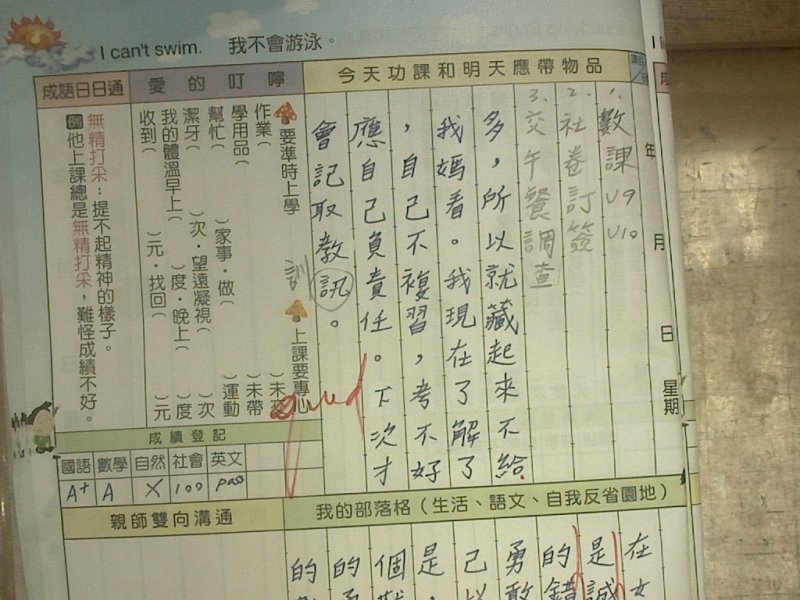 I can't swim. 我不會游泳。
今天功課和明天應帶物品
1.數課U9 U10
2.社卷訂簽
3.交午餐調查
多,所以就藏起來不給
我媽看。我現在了解了
,自己不複習,考不好
應自己負責任。下次才
會記取教訊。
訓
good
愛的叮嚀
要準時上學
上課要專心
作業(
)未
學用品(
)未帶
幫忙(
)家事.做(
)運動
潔牙(
)次.望遠凝視(
)次
我的體溫早上(
)度.晚上(
)度
收到(
)元.找回(
)元
成語日日通
無精打采:提不起精神的樣子。
例他上課總是無精打采,難怪成績不好。
成績登記
國語 數學 自然 社會 英文
A+ A X 100 pass
年 月 日 星期
我的部落格(生活、語文、自我反省園地)
親師雙向溝通
在
是誠
的錯
勇敢
己以
是,
個
的
的